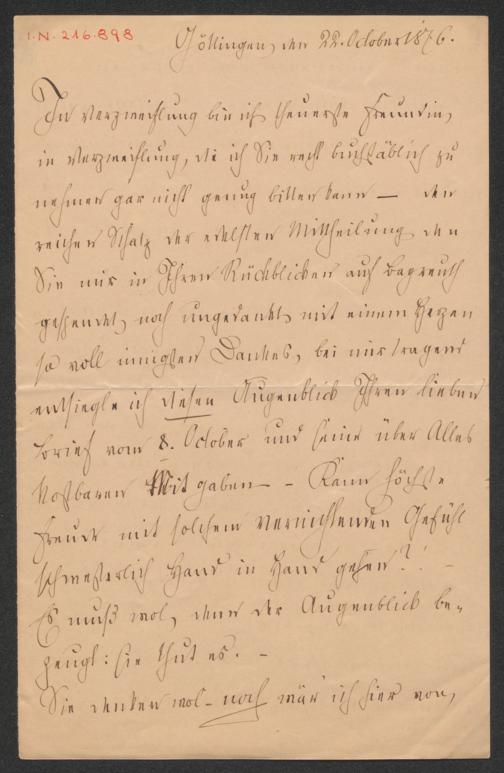 I.N. 216.898
Göttingen, den 22. October 1876.
In Verzweiflung bin ich theuerste Freundin,
in Verzweiflung, die ich Sie recht buchstäblich zu
nehmen gar nicht genug bitten kann — den
reichen Schatz der edelsten Mittheilung, den
Sie mir in Ihren Rückblicken auf Bayreuth
gespendet, noch ungedankt, mit einem Herzen
so voll innigsten Dankes, bei mir tragend
entsiegle ich diesen Augenblick Ihren lieben
Brief vom 8. October und seine über Alles
kostbaren Mitgaben — – Kann höchste
Freude mit solchem vernichtenden Gefühl
schwesterlich Hand in Hand gehen?! –
Es muß wol, denn der Augenblick be-
zeugt: sie thut es. –
Sie denken wol – noch wär ich hier von,